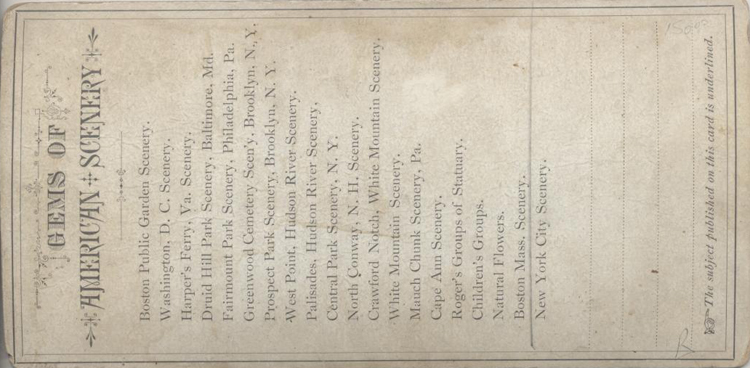 GEMS OF
AMERICAN SCENERY
Boston Public Garden Scenery.
Washington, D. C. Scenery.
Harper's Ferry, Va. Scenery.
Druid Hill Park Scenery, Baltimore, Md.
Fairmount Park Scenery, Philadelphia, Pa.
Greenwood Cemetery Scen'y, Brooklyn, N. Y.
Prospect Park Scenery, Brooklyn, N. Y.
West Point, Hudson River Scenery.
Palisades, Hudson River Scenery,
Central Park Scenery, N. Y.
North Conway, N. H. Scenery.
Crawford Notch, White Mountain Scenery.
White Mountain Scenery.
Mauch Chunk Scenery, Pa.
Cape Ann Scenery.
Roger's Groups of Statuary.
Children's Groups.
Natural Flowers.
Boston Mass. Scenery.
New York City Scenery.
The subject published on this card is underlined.
R